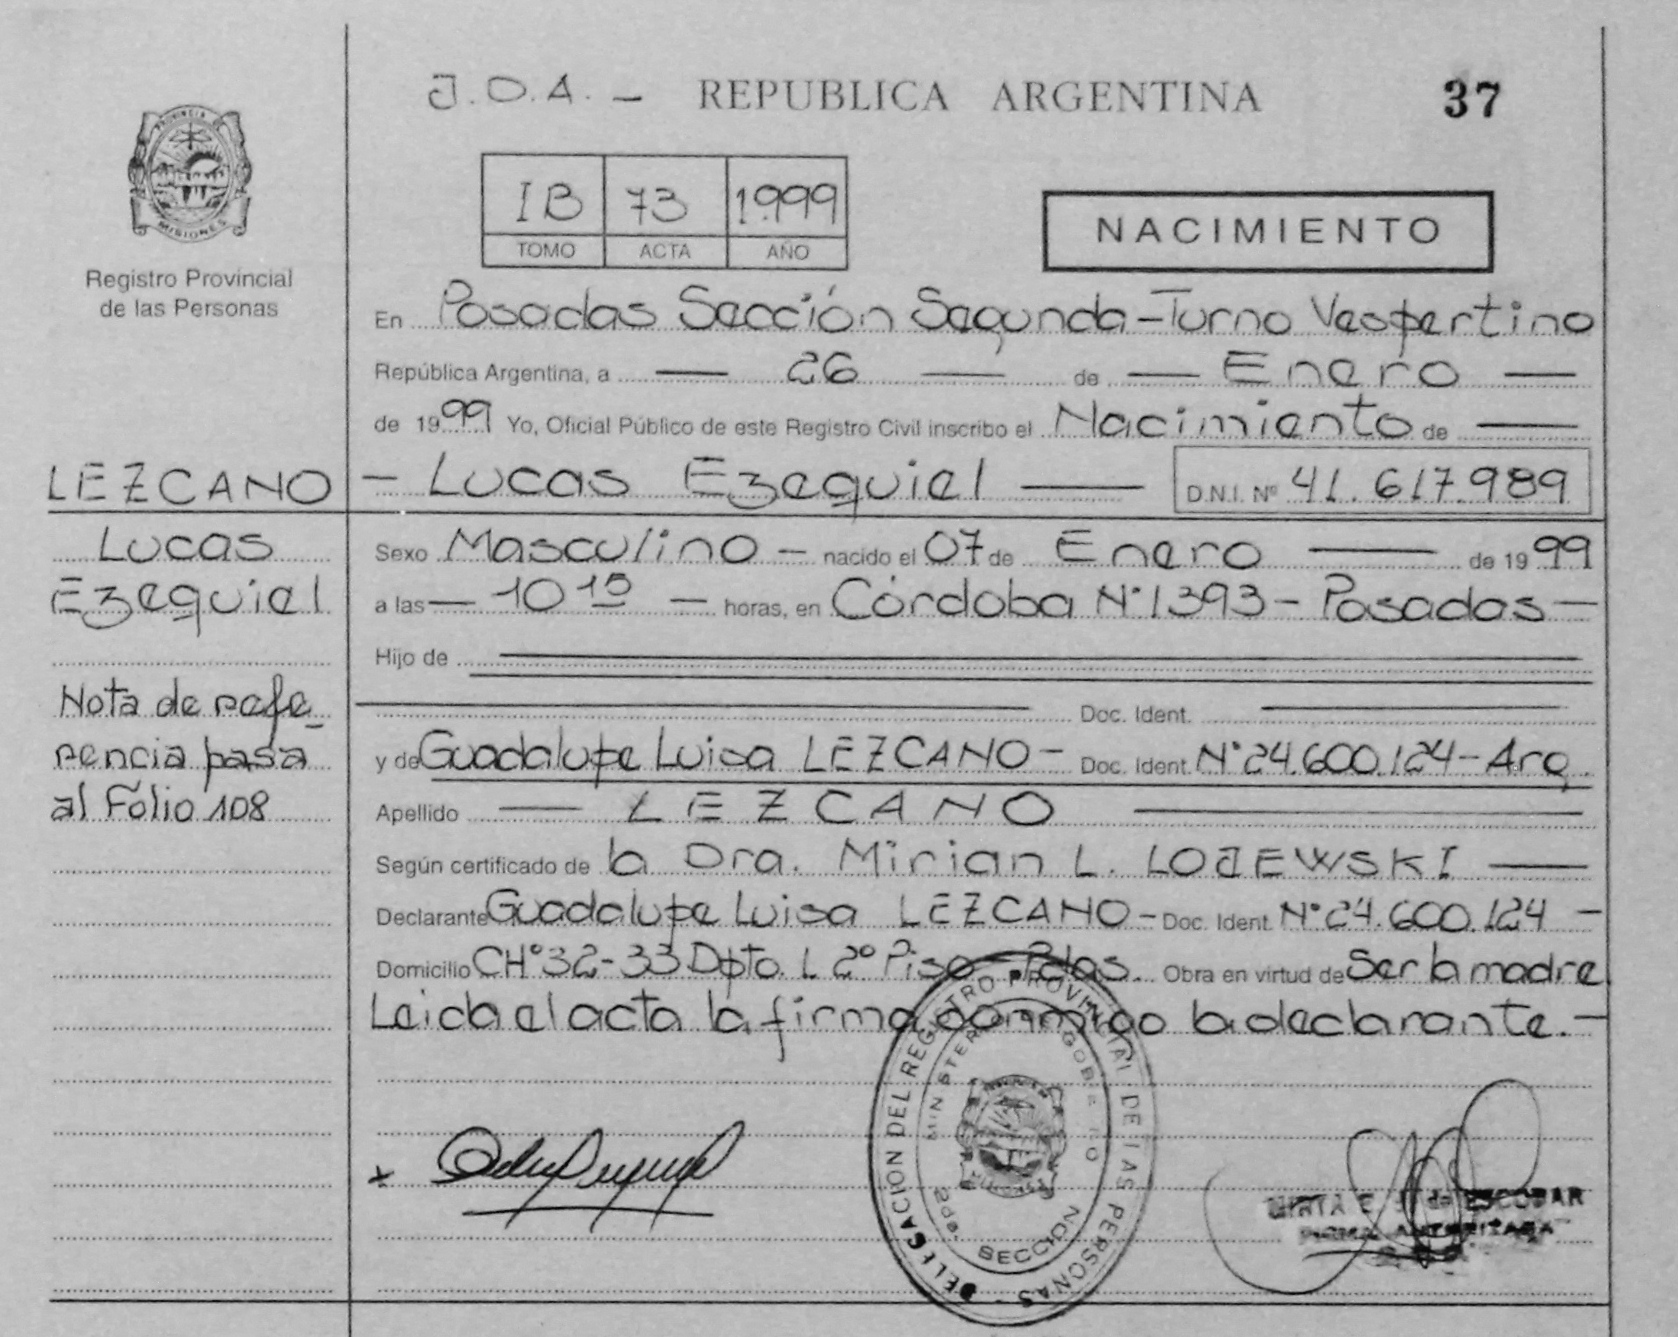 J.O.A. — REPUBLICA ARGENTINA 37
PROVINCIA DE
MISIONES
Registro Provincial
de las Personas
IB 73 1999
TOMO ACTA AÑO
NACIMIENTO
En Posadas Sección Segunda - Turno Vespertino
República Argentina, a — 26 — de — Enero —
de 1999 Yo, Oficial Público de este Registro Civil inscribo el Nacimiento de —
LEZCANO
- Lucas Ezequiel — D.N.I. Nº 41.617.989
Lucas
Ezequiel
Sexo Masculino - nacido el 07 de Enero — de 1999
a las — 10 15 — horas, en Córdoba Nº 1393 - Posadas —
Hijo de
Doc. Ident.
Nota de refe-
rencia pasa
al Folio 108
y de Guadalupe Luisa LEZCANO - Doc. Ident. Nº 24.600.124 - Arg.
Apellido — LEZCANO —
Según certificado de la Dra. Mirian L. LOJEWSKI —
Declarante Guadalupe Luisa LEZCANO - Doc. Ident. Nº 24.600.124 -
Domicilio CHº 32-33 Dpto. L 2º Piso - Pdas. Obra en virtud de Ser la madre
Leida el acta la firma conmigo la declarante.-
DELEGACION DEL REGISTRO PROVINCIAL DE LAS PERSONAS
MINISTERIO GOBIERNO
SECCION
MIRTA E. de ESCOBAR
FIRMA AUTORIZADA